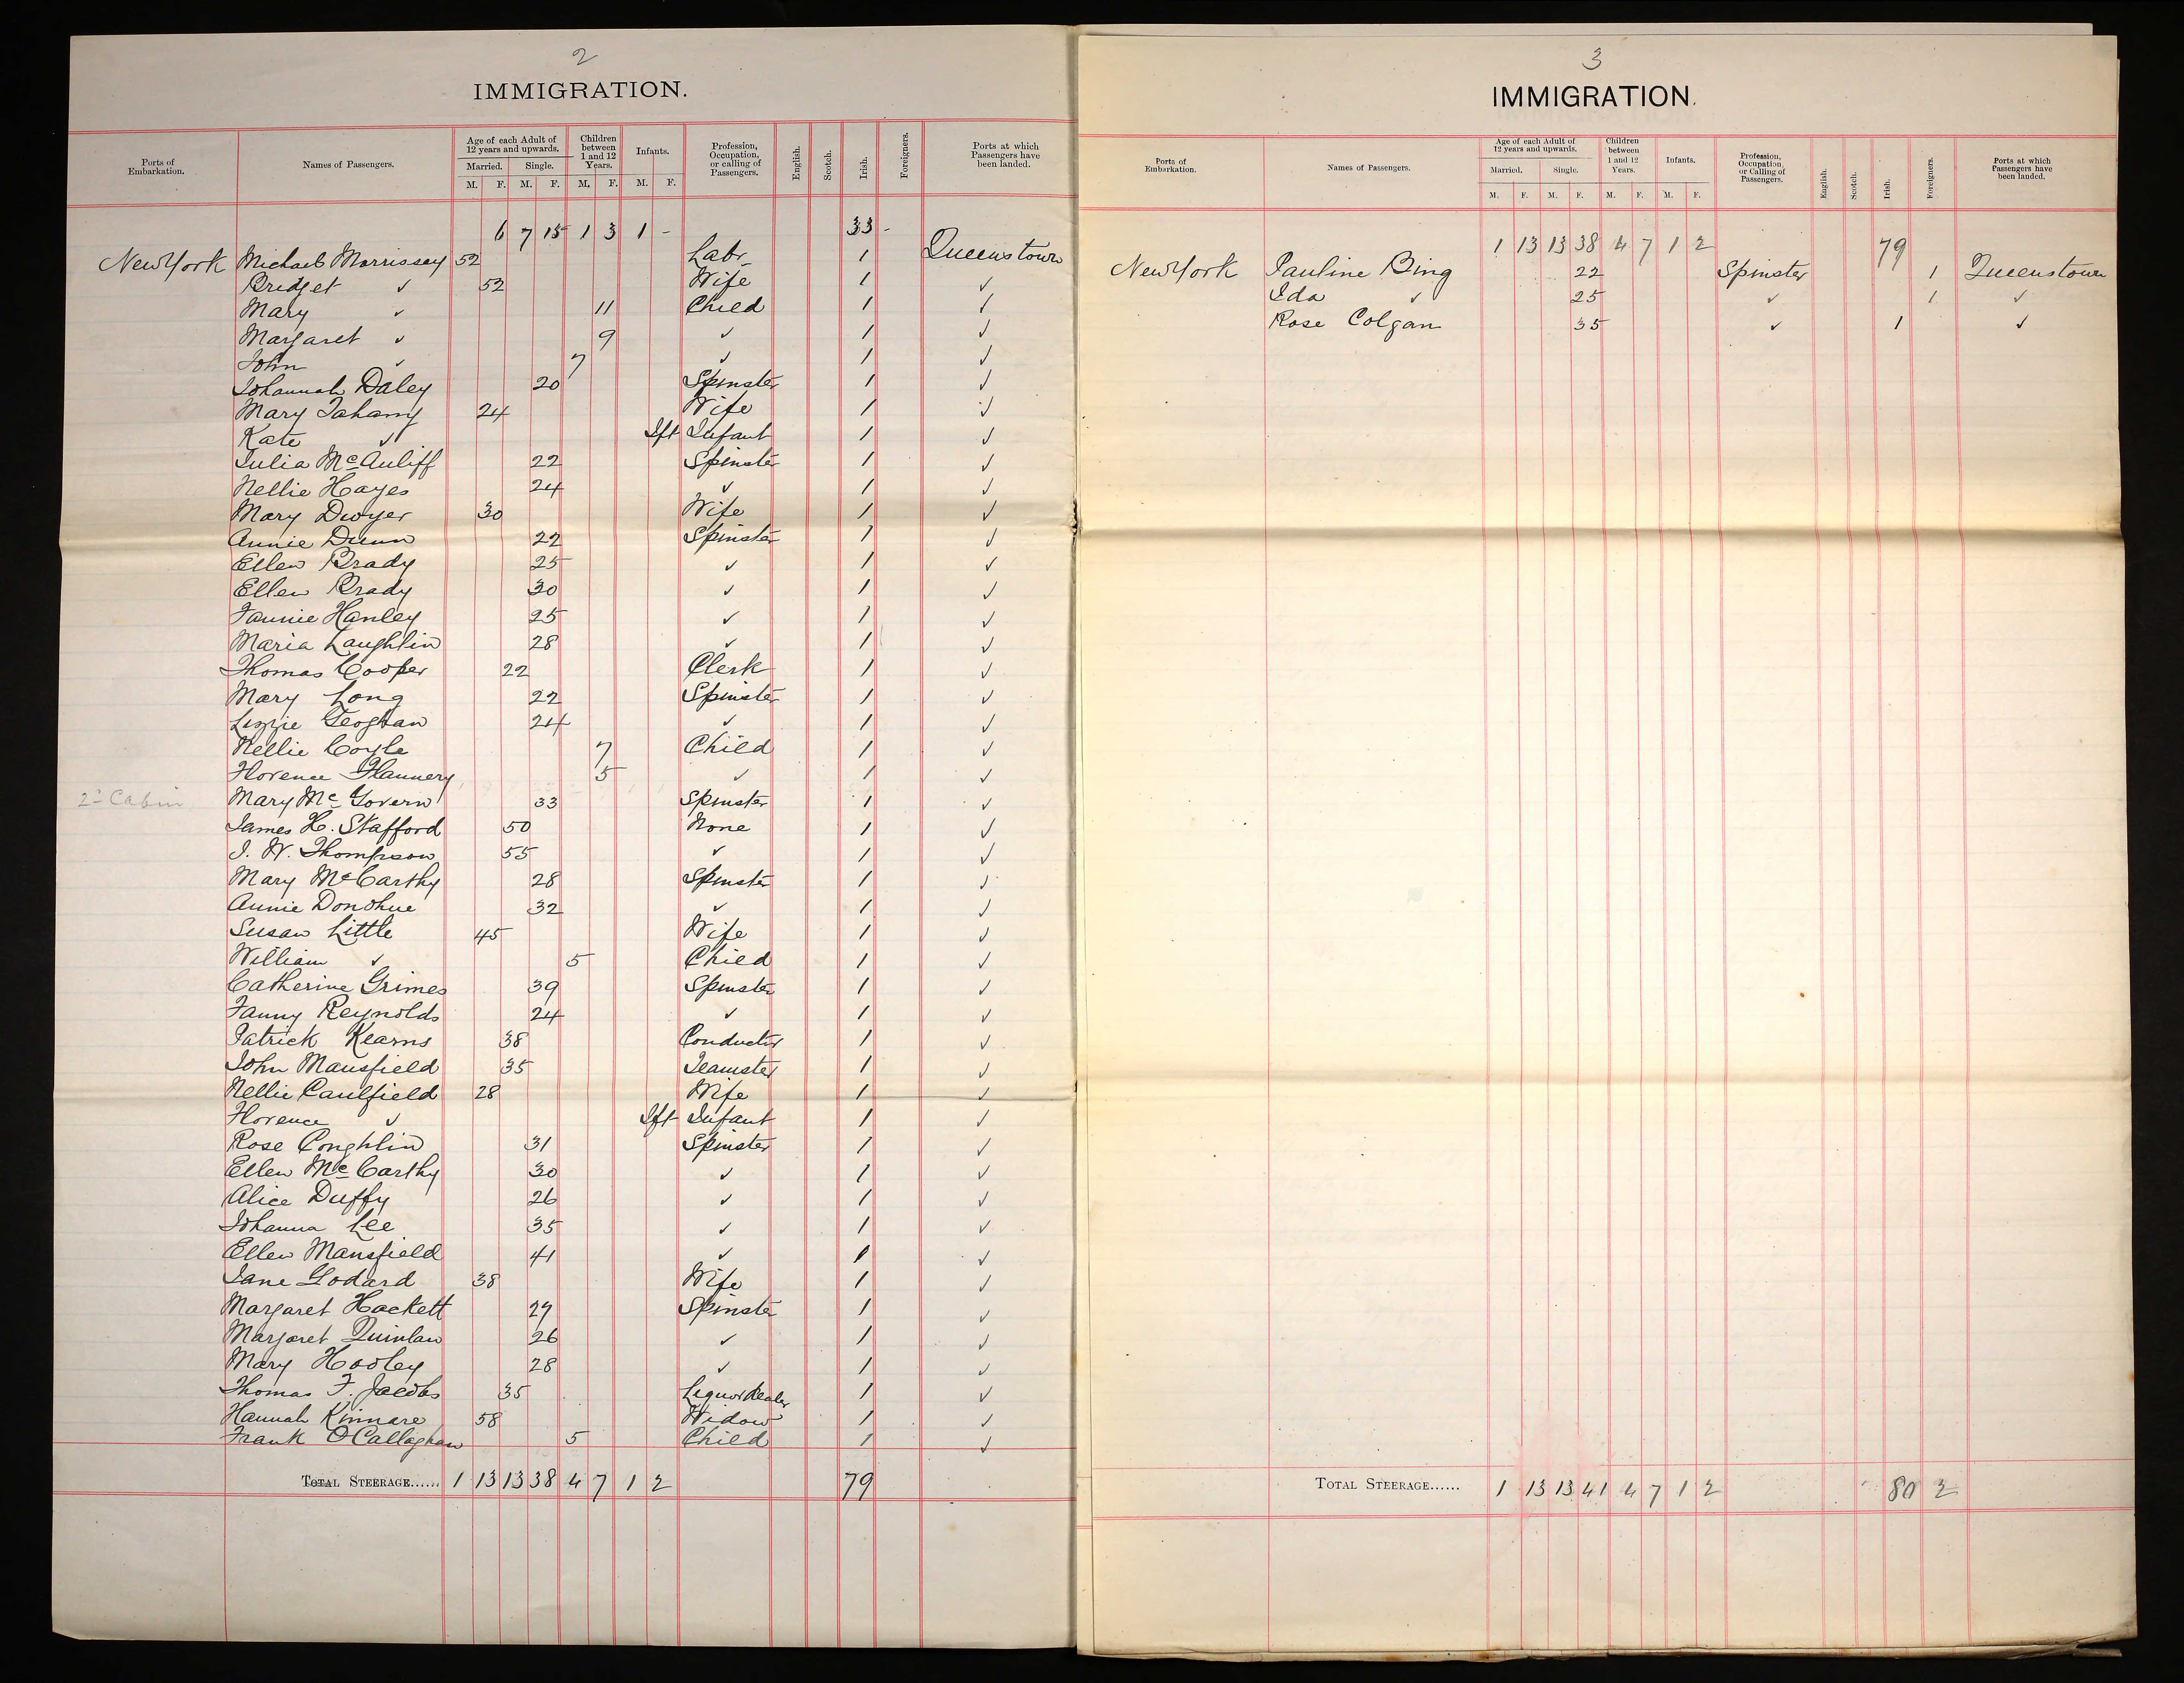 2
IMMIGRATION.
Ports of Embarkation. Names of Passengers. Age of each Adult of 12 years and upwards. Married. Single. M. F. M. F. Children between 1 and 12 Years. M. F. Infants. M. F. Profession, Occupation, or calling of Passengers. English. Scotch. Irish. Foreigners. Ports at which Passengers have been landed.
6 7 15 1 3 1 - 33 -
New York Michael Morrissey 52 Labr 1 Queenstown
Bridget ✓ 52 Wife 1 ✓
Mary ✓ 11 Child 1 ✓
Margaret ✓ 9 ✓ 1 ✓
John ✓ 7 ✓ 1 ✓
Johannah Daley 20 Spinster 1 ✓
Mary Fahamy 24 Wife 1 ✓
Kate ✓ Ift Infant 1 ✓
Julia McAuliff 22 Spinster 1 ✓
Nellie Hayes 24 ✓ 1 ✓
Mary Dwyer 30 Wife 1 ✓
Annie Dunn 22 Spinster 1 ✓
Ellen Brady 25 ✓ 1 ✓
Ellen Brady 30 ✓ 1 ✓
Fannie Hanley 25 ✓ 1 ✓
Maria Laughlin 28 ✓ 1 ✓
Thomas Cooper 22 Clerk 1 ✓
Mary Long 22 Spinster 1 ✓
Lizzie Geoghan 24 ✓ 1 ✓
Nellie Coyle 7 Child 1 ✓
Florence Flannery 5 ✓ 1 ✓
2d Cabin Mary McGovern 33 Spinster 1 ✓
James H. Stafford 50 None 1 ✓
J. W. Thompson 55 ✓ 1 ✓
Mary McCarthy 28 Spinster 1 ✓
Annie Donohue 32 ✓ 1 ✓
Susan Little 45 Wife 1 ✓
William ✓ 5 Child 1 ✓
Catherine Grimes 39 Spinster 1 ✓
Fanny Reynolds 24 ✓ 1 ✓
Patrick Kearns 38 Conductor 1 ✓
John Mansfield 35 Teamster 1 ✓
Nellie Caulfield 28 Wife 1 ✓
Florence ✓ Ift Infant 1 ✓
Rose Coughlin 31 Spinster 1 ✓
Ellen McCarthy 30 ✓ 1 ✓
Alice Duffy 26 ✓ 1 ✓
Johanna Lee 35 ✓ 1 ✓
Ellen Mansfield 41 ✓ 1 ✓
Jane Godard 38 Wife 1 ✓
Margaret Hackett 29 Spinster 1 ✓
Margaret Quinlan 26 ✓ 1 ✓
Mary Hooley 28 ✓ 1 ✓
Thomas F. Jacobs 35 Liquor Dealer 1 ✓
Hannah Kinnare 58 Widow 1 ✓
Frank O'Callaghan 5 Child 1 ✓
TOTAL STEERAGE...... 1 13 13 38 4 7 1 2 79
3
IMMIGRATION.
Ports of Embarkation. Names of Passengers. Age of each Adult of 12 years and upwards. Married. Single. M. F. M. F. Children between 1 and 12 Years. M. F. Infants. M. F. Profession, Occupation, or Calling of Passengers. English. Scotch. Irish. Foreigners. Ports at which Passengers have been landed.
1 13 13 38 4 7 1 2 79
New York Pauline Bing 22 Spinster 1 Queenstown
Ida ✓ 25 ✓ 1 ✓
Rose Colgan 35 ✓ 1 ✓
TOTAL STEERAGE...... 1 13 13 41 4 7 1 2 80 2